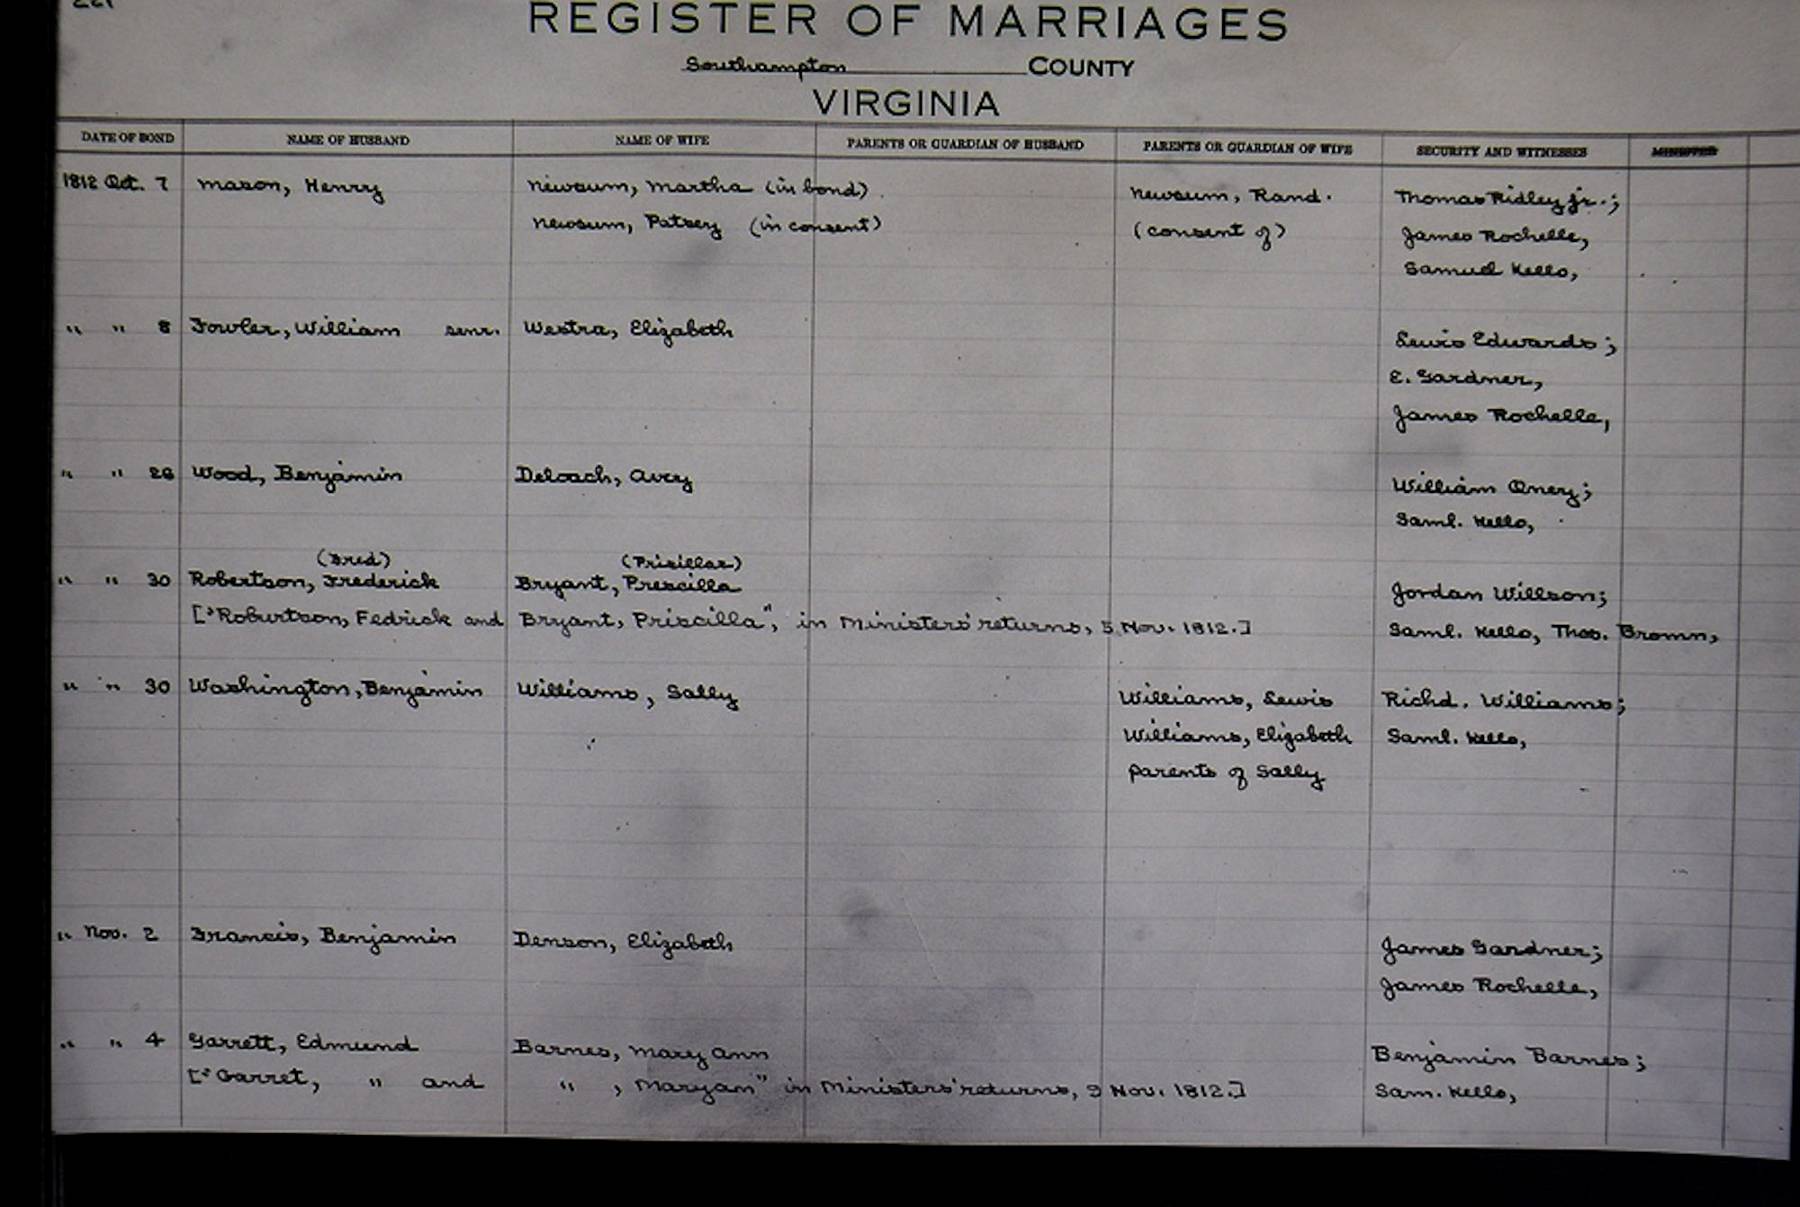 REGISTER OF MARRIAGES
Southampton COUNTY
VIRGINIA
DATE OF BOND NAME OF HUSBAND NAME OF WIFE PARENTS OR GUARDIAN OF HUSBAND PARENTS OR GUARDIAN OF WIFE SECURITY AND WITNESSES MINISTER
1812 Oct. 7 Mason, Henry Newsum, Martha (in bond) Newsum, Rand. Thomas Ridley jr.;
Newsum, Patsey (in consent) (consent of) James Rochelle,
Samuel Kello,
" " 8 Fowler, William senr. Westra, Elizabeth Lewis Edwards;
E. Gardner,
James Rochelle,
" " 26 Wood, Benjamin Deloach, Avey William Oney;
Saml. Kello,
(Fred) (Prisillar)
" " 30 Robertson, Frederick Bryant, Prescilla Jordan Willson;
["Robertson, Fedrick and Bryant, Priscilla", in Ministers' returns, 5 Nov. 1812.] Saml. Kello, Thos. Bromn,
" " 30 Washington, Benjamin Williams, Sally Williams, Lewis Richd. Williams;
Williams, Elizabeth Saml. Kello,
parents of Sally
" Nov. 2 Francis, Benjamin Denson, Elizabeth James Gardner;
James Rochelle,
" " 4 Garrett, Edmund Barnes, Mary Ann Benjamin Barnes;
["Garret, " and " , Maryan" in Ministers' returns, 9 Nov. 1812.] Sam. Kello,